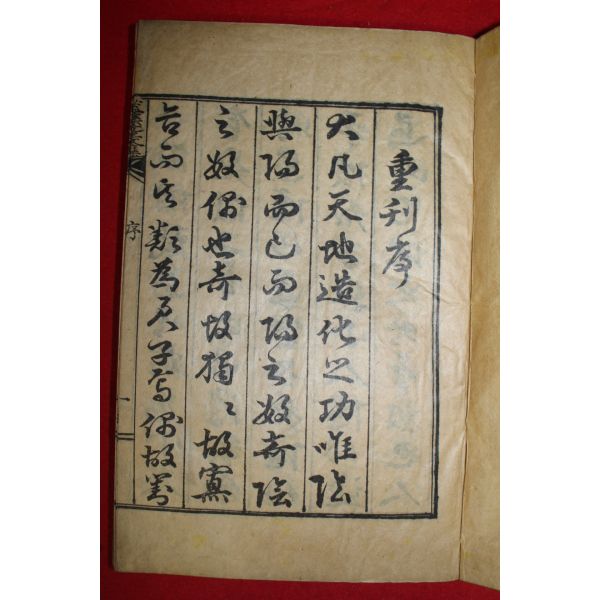 重刊序
大凡天地造化之功唯陰
與陽而已而陽之數奇陰
之數偶也奇故獨〻故寡
合而其類爲君子焉偶故對
序
一